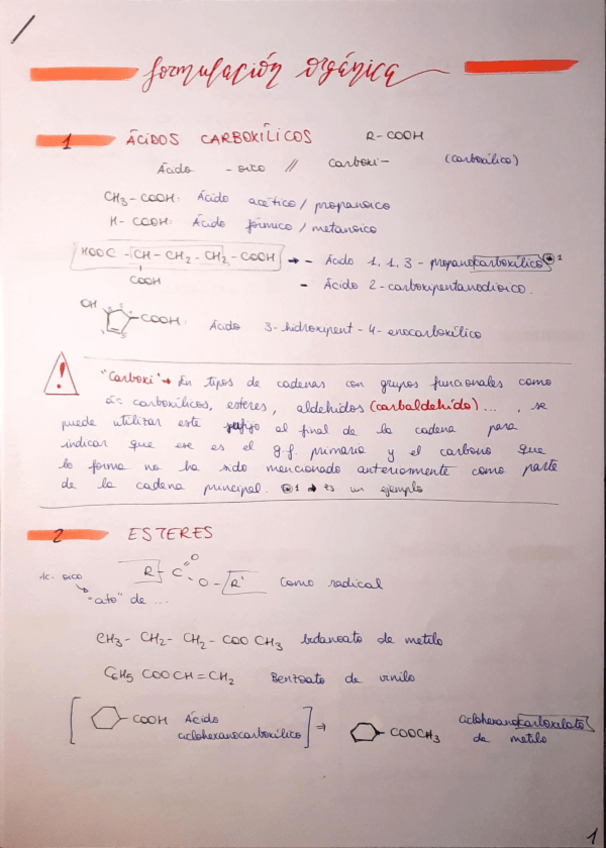 formulación orgánica
1 ÁCIDOS CARBOXÍLICOS R-COOH
Ácido -oico // Carboxi- (carboxílico)
CH3-COOH: Ácido acético / propanoico
H-COOH: Ácido fórmico / metanoico
HOOC-CH-CH2-CH2-COOH → - Ácido 1,1,3-propanocarboxílico ⊛1
COOH
- Ácido 2-carboxipentanodioico.
OH
-COOH: Ácido 3-hidroxipent-4-enocarboxílico
! "Carboxi" → En tipos de cadenas con grupos funcionales como
ác. carboxílicos, esteres, aldehidos (carbaldehído) ... , se
puede utilizar este al final de la cadena para
indicar que ese es el g.f. primario y el carbono que
lo forma no ha sido mencionado anteriormente como parte
de la cadena principal. ⊛1 → es un ejemplo
2 ESTERES
Ac. oico
R-C=O
O-R' como radical
"ato" de ...
CH3-CH2-CH2-COO CH3 butanoato de metilo
C6H5 COOCH=CH2 Benzoato de vinilo
[ -COOH Ácido ciclohexanocarboxílico ] ⇒ -COOCH3 ciclohexanocarboxilato
de metilo
1